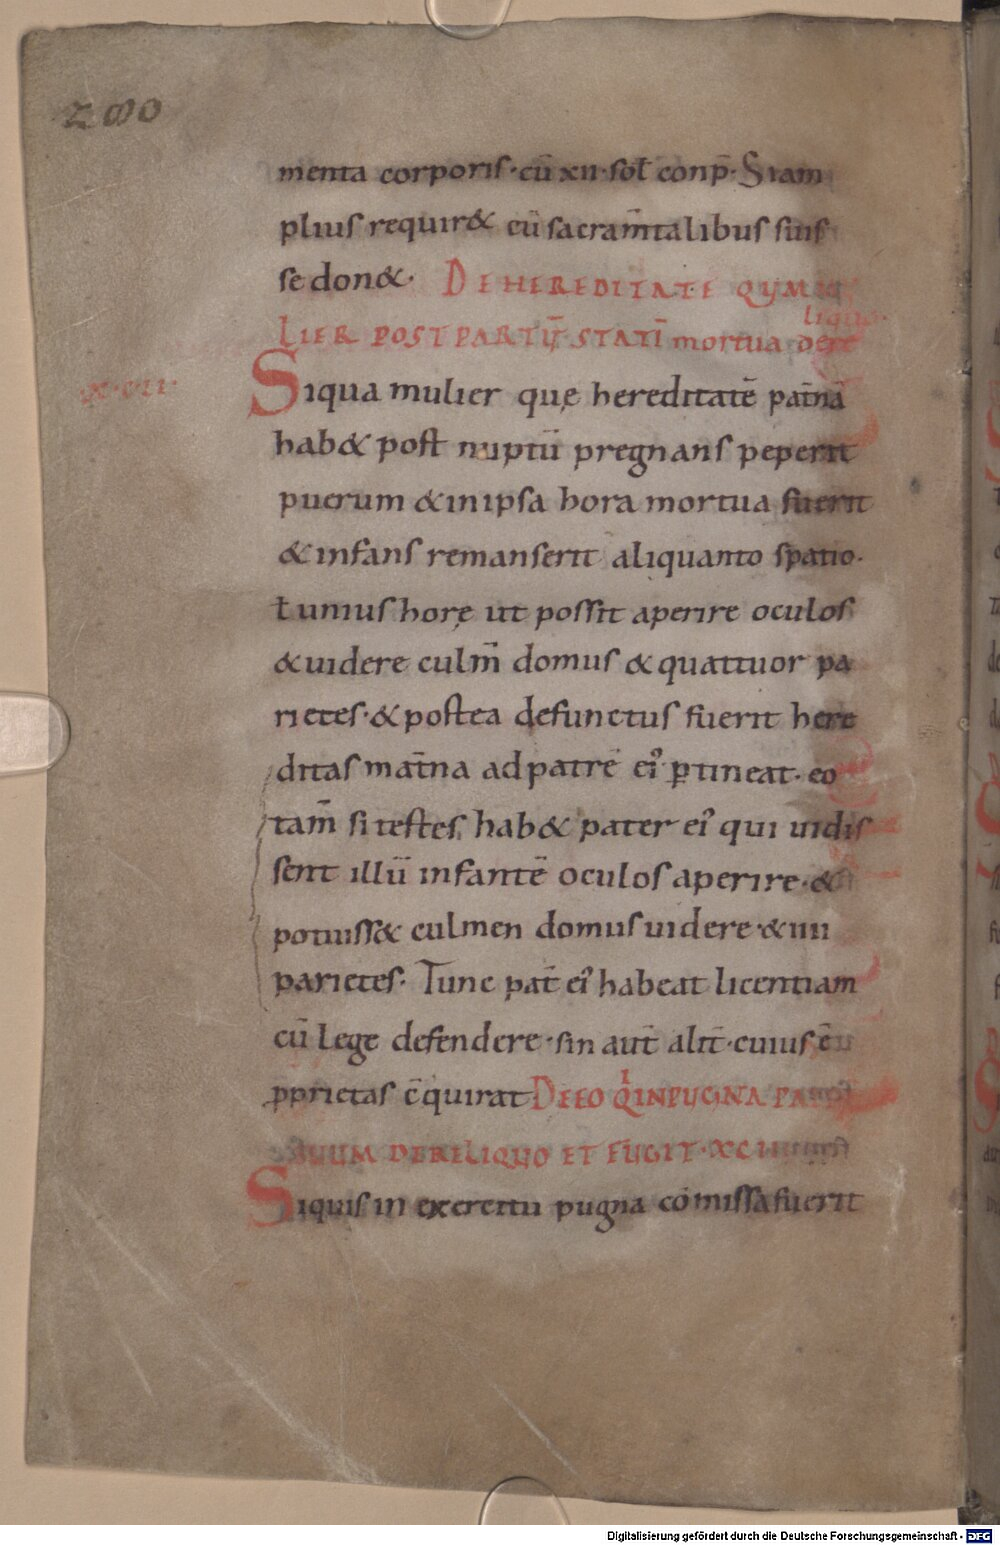 menta corporis·cū xii·sol̄ conp̄·Siam
plius requir& cū sacram̄talibus suis
se don&· DE HEREDITATE QUAM
liquo·
LIER POST PARTŪ STATĪ mortua dere
x·cii·
Siqua mulier quę hereditatē pat̄nā
hab& post nuptū pregnans pepererit
puerum &in ipsa hora mortua fuerit
&infans remanserit aliquanto spatio·
ł unius horę ut possit aperire oculos
&uidere culm̄ domus &quattuor pa
rietes·&postea defunctus fuerit here
ditas mat̄na ad patrē ei᾽ ꝑtineat·eo
tam̄ si testes hab& pater ei᾽ qui uidis
sent illū infantē oculos aperire·&
potuiss& culmen domus uidere·&iiii
parietes· Tunc pat̄ ei᾽ habeat licentiam
cū lege defendere·sin aut̄ alit̄·cuius ē
ꝓprietas c̄quirat DE EO Qͥ IN PUGNA
SUUM DERELIQUO ET FUGIT·
Siquis in exercitu pugna comissa fuerit
Digitalisierung gefördert durch die Deutsche Forschungsgemeinschaft - DFG